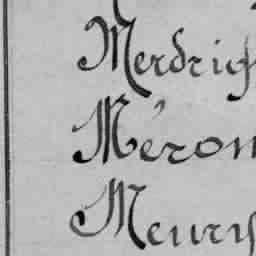 Merdrig
Méron
Meurys